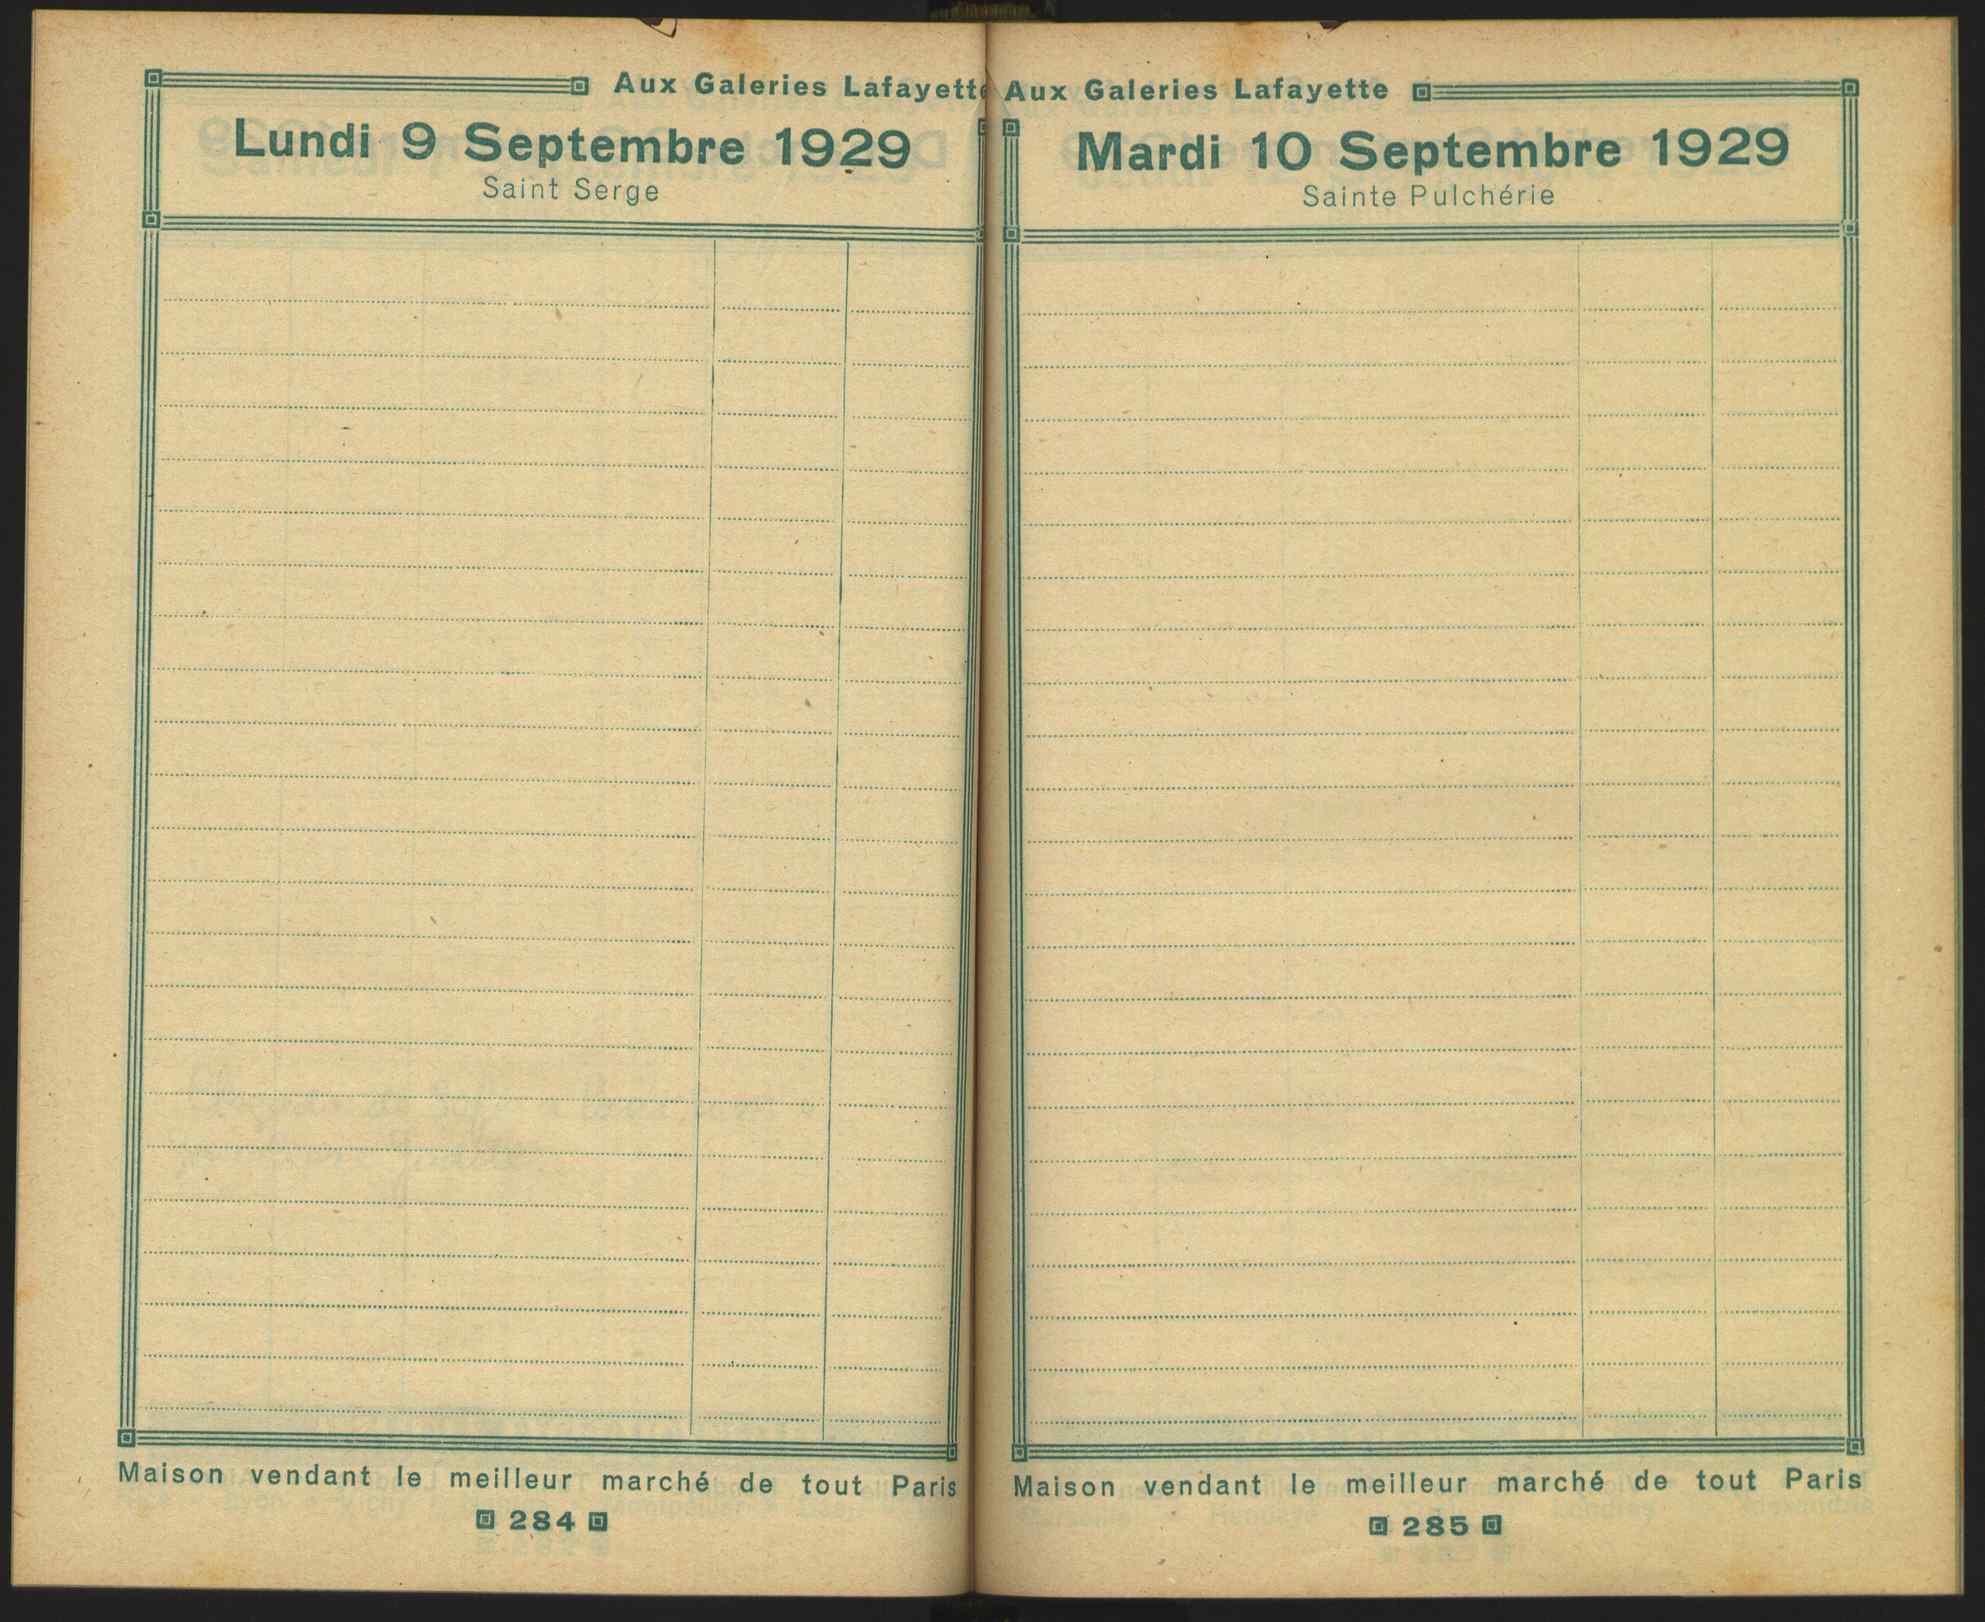 Aux Galeries Lafayette
Lundi 9 Septembre 1929
Saint Serge
Maison vendant le meilleur marché de tout Paris
284
Aux Galeries Lafayette
Mardi 10 Septembre 1929
Sainte Pulchérie
Maison vendant le meilleur marché de tout Paris
285